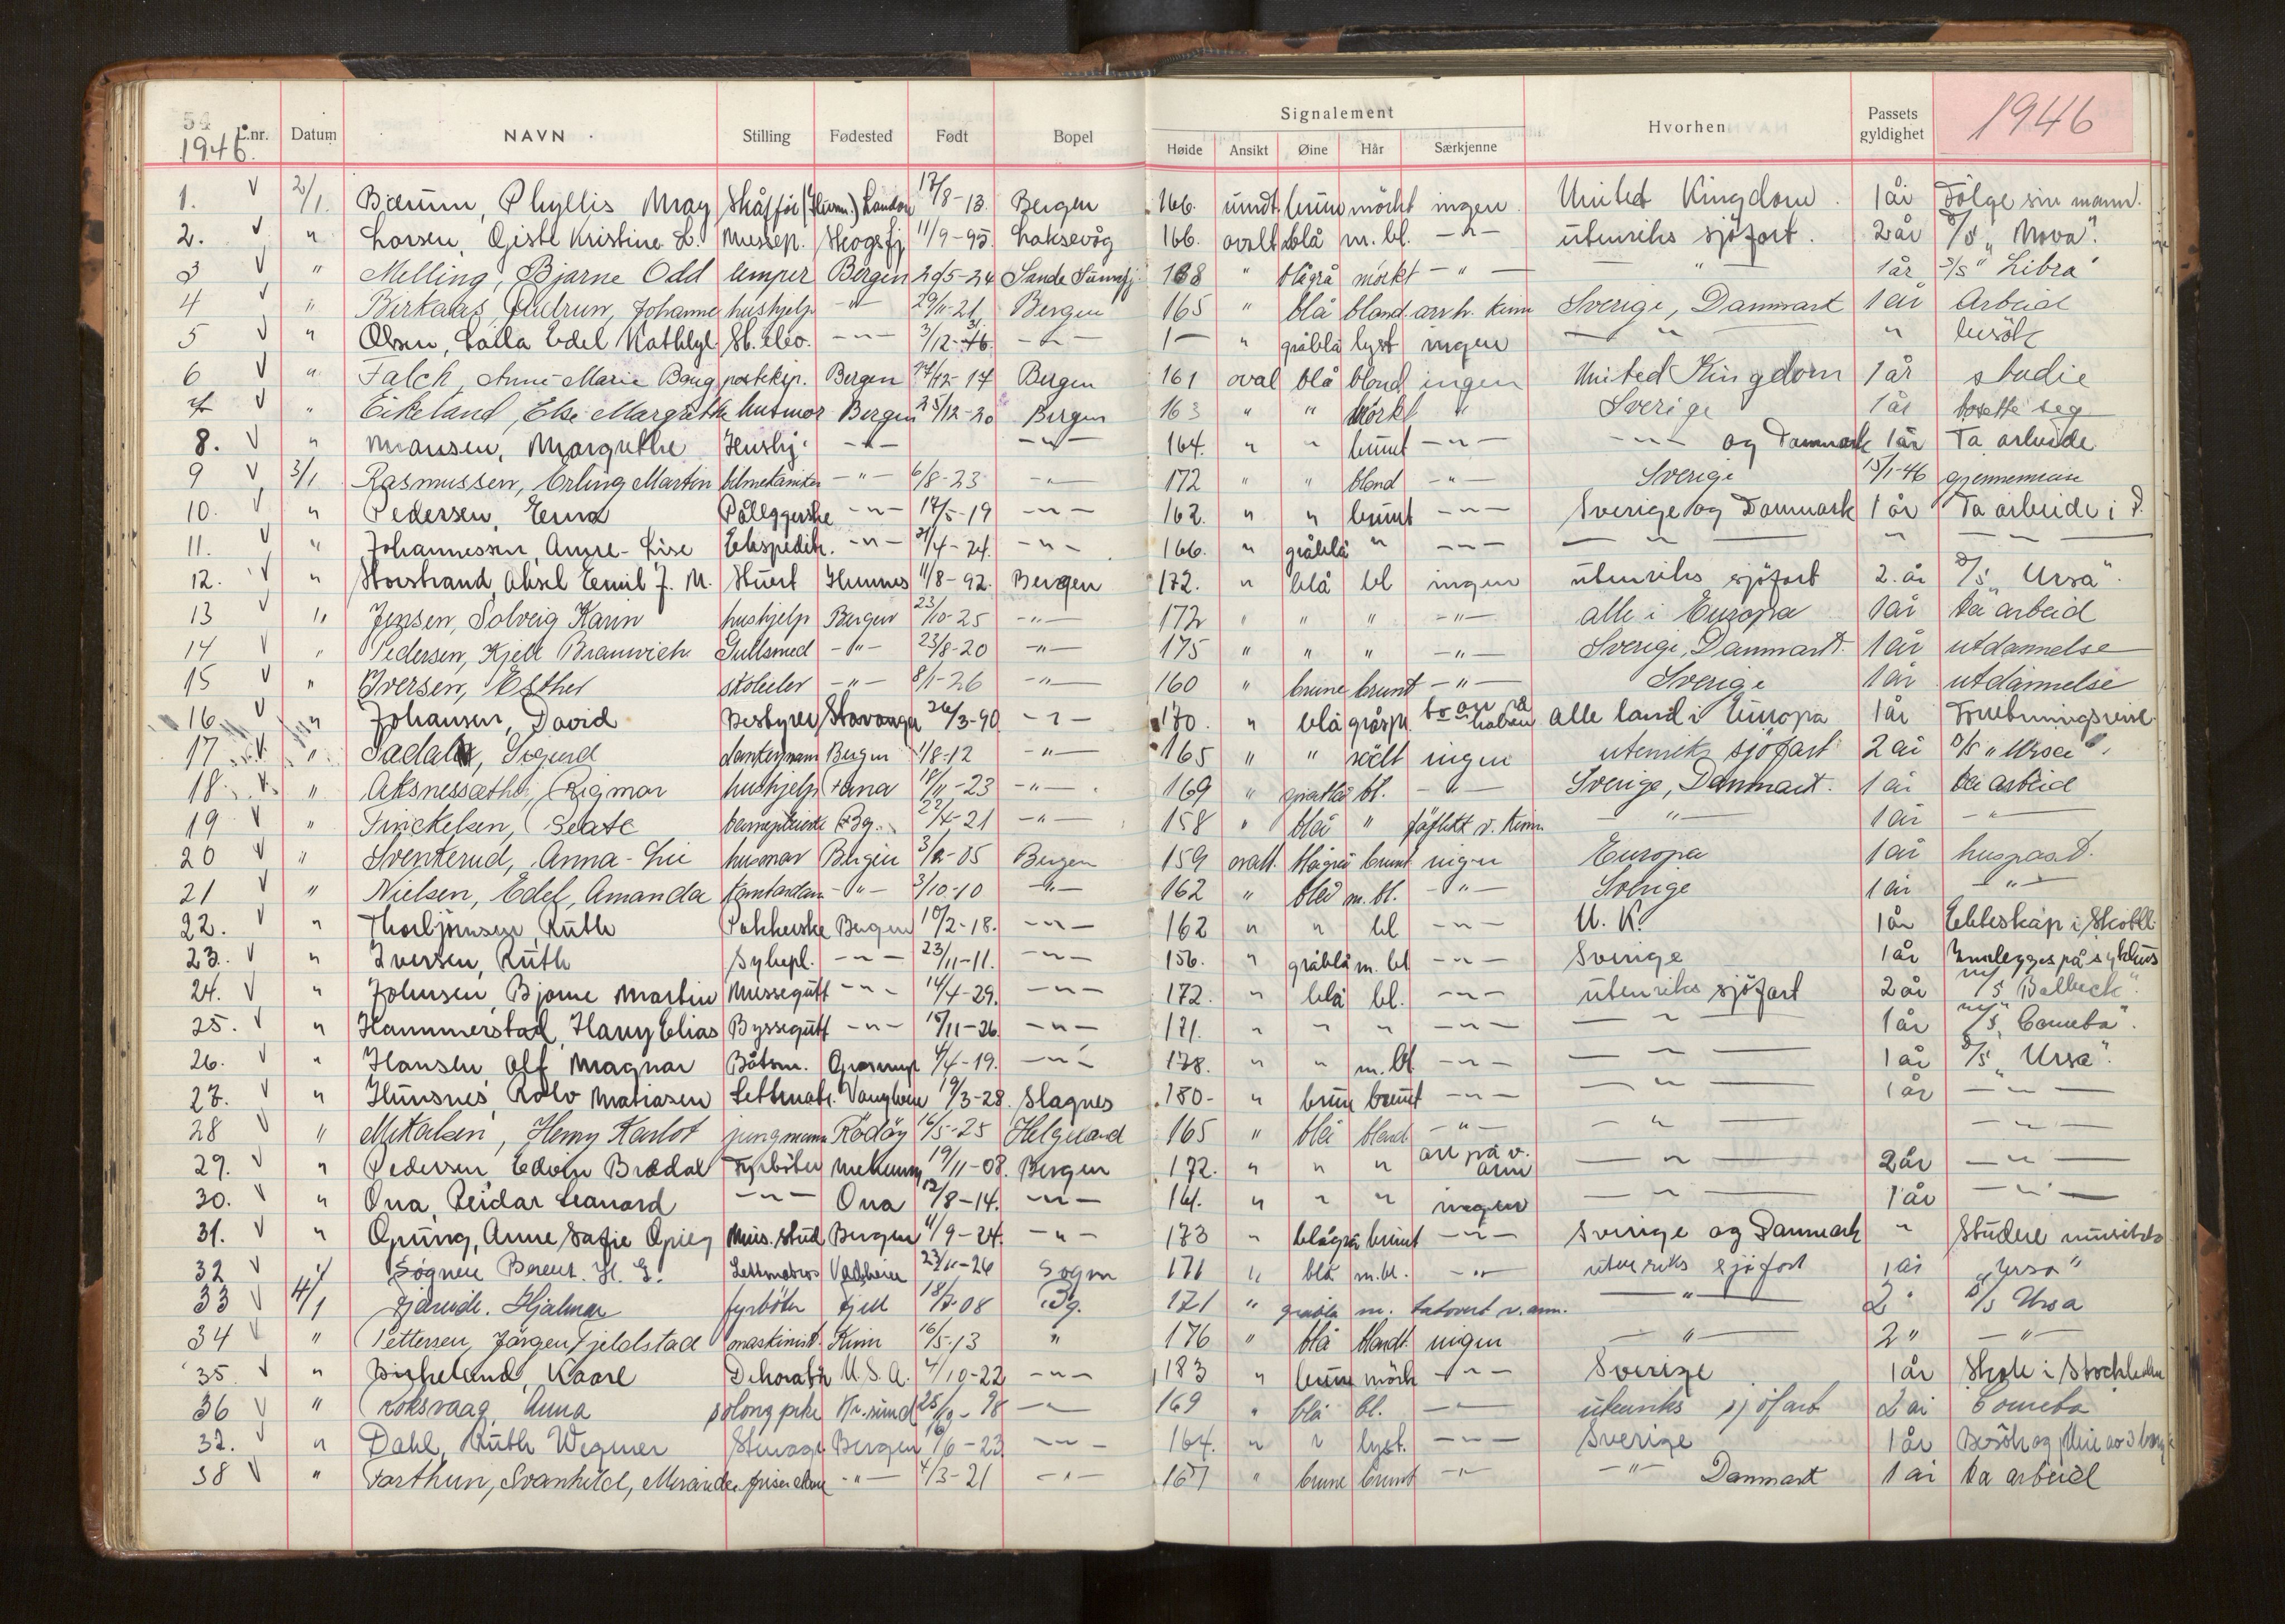 54
1946.
L.nr. Datum NAVN Stilling Fødested Født Bopel Signalement Hvorhen Passets gyldighet 1946
Høide Ansikt Øine Hår Særkjenne
1. V 2/1. Bærum, Phyllis May London 17/8-13. Bergen 166. rundt brun mörkt ingen United Kingdom. 1 år Følge sin mann.
2. V " Larsen, Kristine L. Messep. 11/9-95. Laksevåg 166. ovalt blå m. bl. -"- utenriks sjöfart. 2 år D/S "Nova".
3 V " Melling, Bjarne Odd lemper Bergen 29/5-24 Sande 168 " blågrå mörkt -"- -"- 1 år D/S "Libra"
4 V " Birkaas, Gudrun, Johanne hushjelp -"- 29/11-21 Bergen 165 " blå blond arr h. kinn Sverige, Danmark 1 år Arbeid
5 V " Olsen, Lalla Edel -"- 3/12- -"- " gråblå lyst ingen -"- " besök
6 V " Falch, Anne-Marie Bang posteksp. Bergen 24/12-17 Bergen 161 oval blå blond ingen United Kingdom 1 år studie
7 V " Eikeland, Else Margrethe husmor Bergen 25/12-20 Bergen 163 " " mörkt " Sverige 1 år bosette seg
8. V " Margrethe Hushj. -"- -"- 164. " " brunt -"- -"- og Danmark 1 år Ta arbeide
9 V 3/1 Rasmussen, Erling Martin bilmekaniker -"- 6/8-23 -"- 172 " " blond -"- Sverige 15/1-46 gjennemreise
10. V " Pedersen, Erna Påleggerske -"- 14/5-19 -"- 162. " " brunt -"- Sverige og Danmark 1 år Ta arbeide i D.
11. V " Johannessen, Anne-Lise Ekspeditr. -"- 21/4-24. -"- 166. " gråblå " -"- -"- " -"-
12. V " Storstrand, Aksel Emil J. M. Stuert 11/8-92. Bergen 172. " blå bl ingen utenriks sjöfart 2. år D/S "Ursa".
13 V " Jensen, Solveig Karin hushjelp Bergen 23/10-25 -"- 172 " " " -"- alle i Europa 1 år ta arbeid
14 V " Pedersen, Kjell Gullsmed -"- 23/8-20 -"- 175 " " " -"- Sverige, Danmark. 1 år utdannelse
15 V " Iversen, Esther skoleelev -"- 8/1-26 -"- 160 " brune brunt -"- Sverige 1 år utdannelse
16 V " Johansen, David Bestyrer Stavanger 26/3-90 -"- 170. " blå alle land i Europa 1 år Forretningsreise
17 V " Sigurd Bergen 1/8-12 -"- 165 " " rödt ingen utenriks sjöfart 2 år D/S "Ursa".
18. V " Aksnessæther, Rigmor hushjelp Fana 18/11-23 -"- 169 " gråblå bl. -"- Sverige, Danmark. 1 år ta arbeid
19 V " Beate Bg. 22/4-21 -"- 158 " blå " föflekk v. kinn -"- 1 år -"-
20 V " Svenkerud, Anna-Lie husmor Bergen 05 Bergen 159 ovalt blågrå brunt ingen Europa 1 år huspost.
21 V " Nielsen, Edel, Amanda kontordame -"- 3/10-10 -"- 162 " blå m. bl. -"- Sverige 1 år -"-
22. V " Thorbjörnsen, Ruth Pakkerske Bergen 10/2-18. -"- 162 " " bl -"- U.K. 1 år Ekteskap i Skottl.
23. V " Iversen, Ruth Sykepl. -"- 23/11-11. -"- 156. " gråblå m. bl -"- Sverige 1 år Innlegges på sykhus
24. V " Johnsen, Bjarne Martin Messegutt -"- 14/4-29. -"- 172. " blå bl. -"- utenriks sjöfart 2 år M/S "Balbeck".
25. V " Hammerstad, Harry Elias Byssegutt -"- 15/11-26. -"- 171. " " " -"- -"- 1 år M/S "Cometa".
26. V " Hansen Alf Magnar Båtsm. 4/4-19. -"- 178. " " m. bl. -"- -"- 1 år D/S "Ursa".
27. V " Hunsnes Rolv Matiasen Lettmatr. 19/3-28. Slagnes 180- " brun brunt -"- -"- 1 år -"-
28 V " Mikalsen, Henry Karlot jungmann Rödöy 16/5-25 Helgeland 165 " blå blond -"- -"- -"-
29. V " Pedersen Edvin Bredal Fyrböter 19/11-08. Bergen 172. " " " arr på v. arm -"- 2 år -"-
30. V " Ona, Reidar Leonard -"- Ona 12/8-14. -"- " " " ingen -"- 1 år -"-
31. V " Grung, Anne Sofie Grieg Mus. stud Bergen 4/9-24. -"- 173 " blågrå brunt -"- Sverige og Danmark " Studere musikk
32 V " Sögnen Berent. H. G. Lettmatros Vadheim 23/11-26 Sogn 171 " blå m.bl. -"- utenriks sjöfart 1 år "Ursa"
33 V 4/1 Hjalmar fyrböter Fjell 08 Bg. 171 " gråblå m. tatovert v. arm. -"- 2 " D/S Ursa
34 V " Pettersen, Jörgen Fjeldstad maskinist Kinn 16/5-13 " 176 " blå blondt ingen -"- 2 " -"-
35. V " Birkeland, Kaare Dekoratör U.S.A. 4/10-22 -"- 183 " brun mörk -"- Sverige 1 år Skole i Stockholm
36 V " Koksvaag, Anna salongpike Kr.sund -"- 169 " blå bl. -"- utenriks sjöfart 2 år Cometa
37. V " Dahl, Ruth Wegner Bergen 16/6-23 -"- 164. " " lyst. -"- Sverige 1 år
38 V " Farthun, Svanhild, Mirander -"- 4/3-21 -"- 167 " brune brunt -"- -"- Danmark 1 år ta arbeid